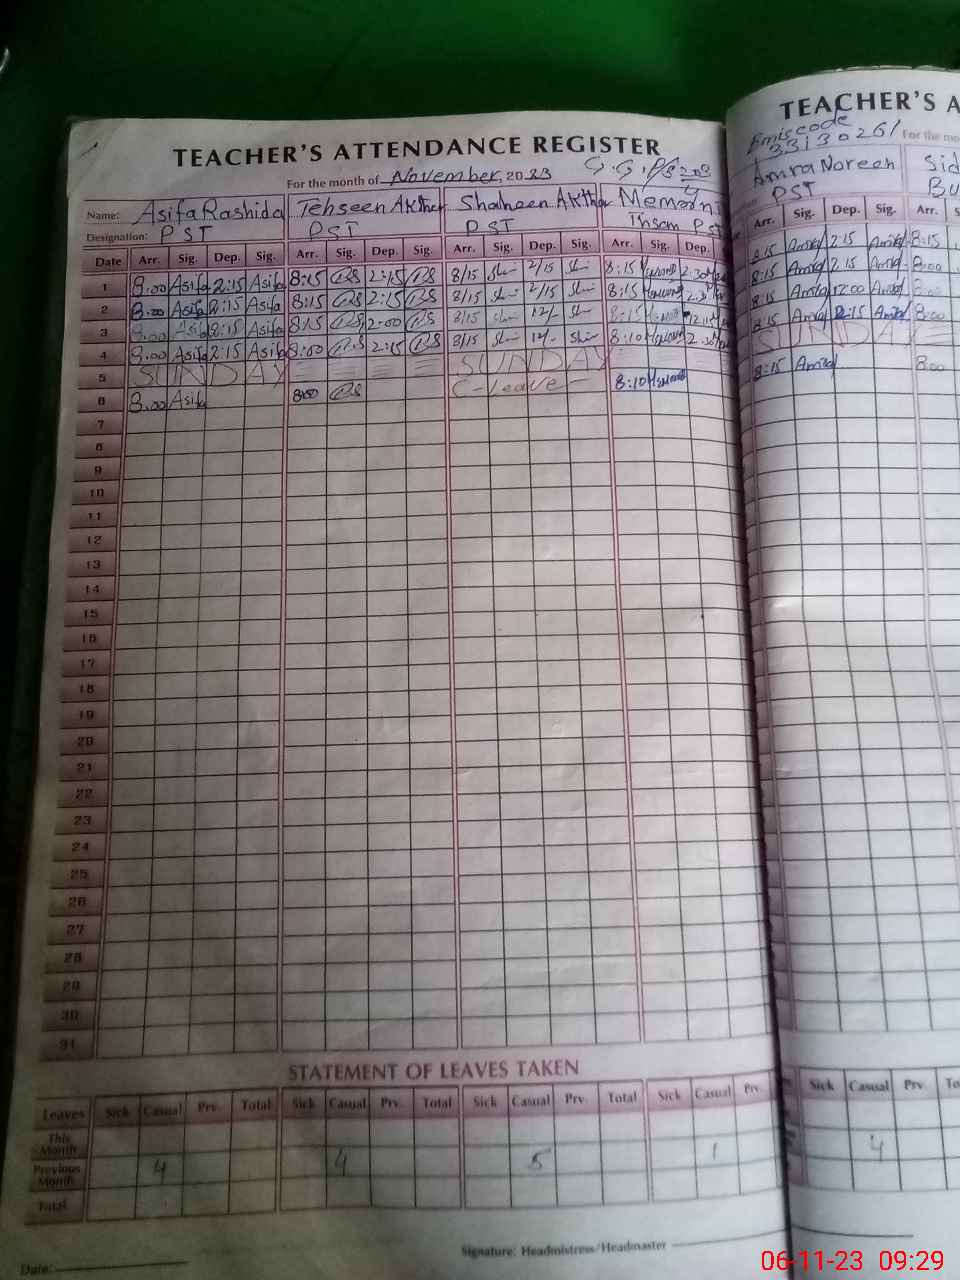 TEACHER'S ATTENDANCE REGISTER
For the month of November, 2023
Name: Asifa Rashida Tehseen Akther Shaheen Akthar
Designation: PST PST PST Ihsan PST
Date Arr. Sig. Dep. Sig. Arr. Sig. Dep. Sig. Arr. Sig. Dep. Sig. Arr. Sig. Dep.
1 8.00 Asifa 2:15 Asifa 8:15 2:15 8/15 2/15 8:15 2.30
2 8.00 Asifa 2:15 Asifa 8:15 2:15 8/15 2/15 8:15 2.30
3 8.00 Asifa Asifa 8:15 2:00 8/15 12/- 8:15
4 8.00 Asifa 2:15 Asifa 8:00 2:15 8/15 12/- 8:10 2.30
5 SUNDAY SUNDAY
6 8.00 Asifa 8:00 C-Leave 8:10
7
8
9
10
11
12
13
14
15
16
17
18
19
20
21
22
23
24
25
26
27
28
29
30
31
STATEMENT OF LEAVES TAKEN
Leaves Sick Casual Prv. Total Sick Casual Prv. Total Sick Casual Prv. Total Sick Casual Prv.
This Month
Previous Month 4 4 5 1
Total
Signature: Headmistress/Headmaster
Date:
TEACHER'S A
Emiscode
33130261
For the mo
Amra Noreen Sid
PST
Arr. Sig. Dep. Sig. Arr. S
8:15 Amra 2:15 Amra 8:15
8:15 Amra 2:15 Amra 8:00
8:15 Amra 12:00 Amra
8:15 Amra 2:15 Amra 8:00
8:15 Amra 8:00
Sick Casual Prv. To
4
06-11-23 09:29